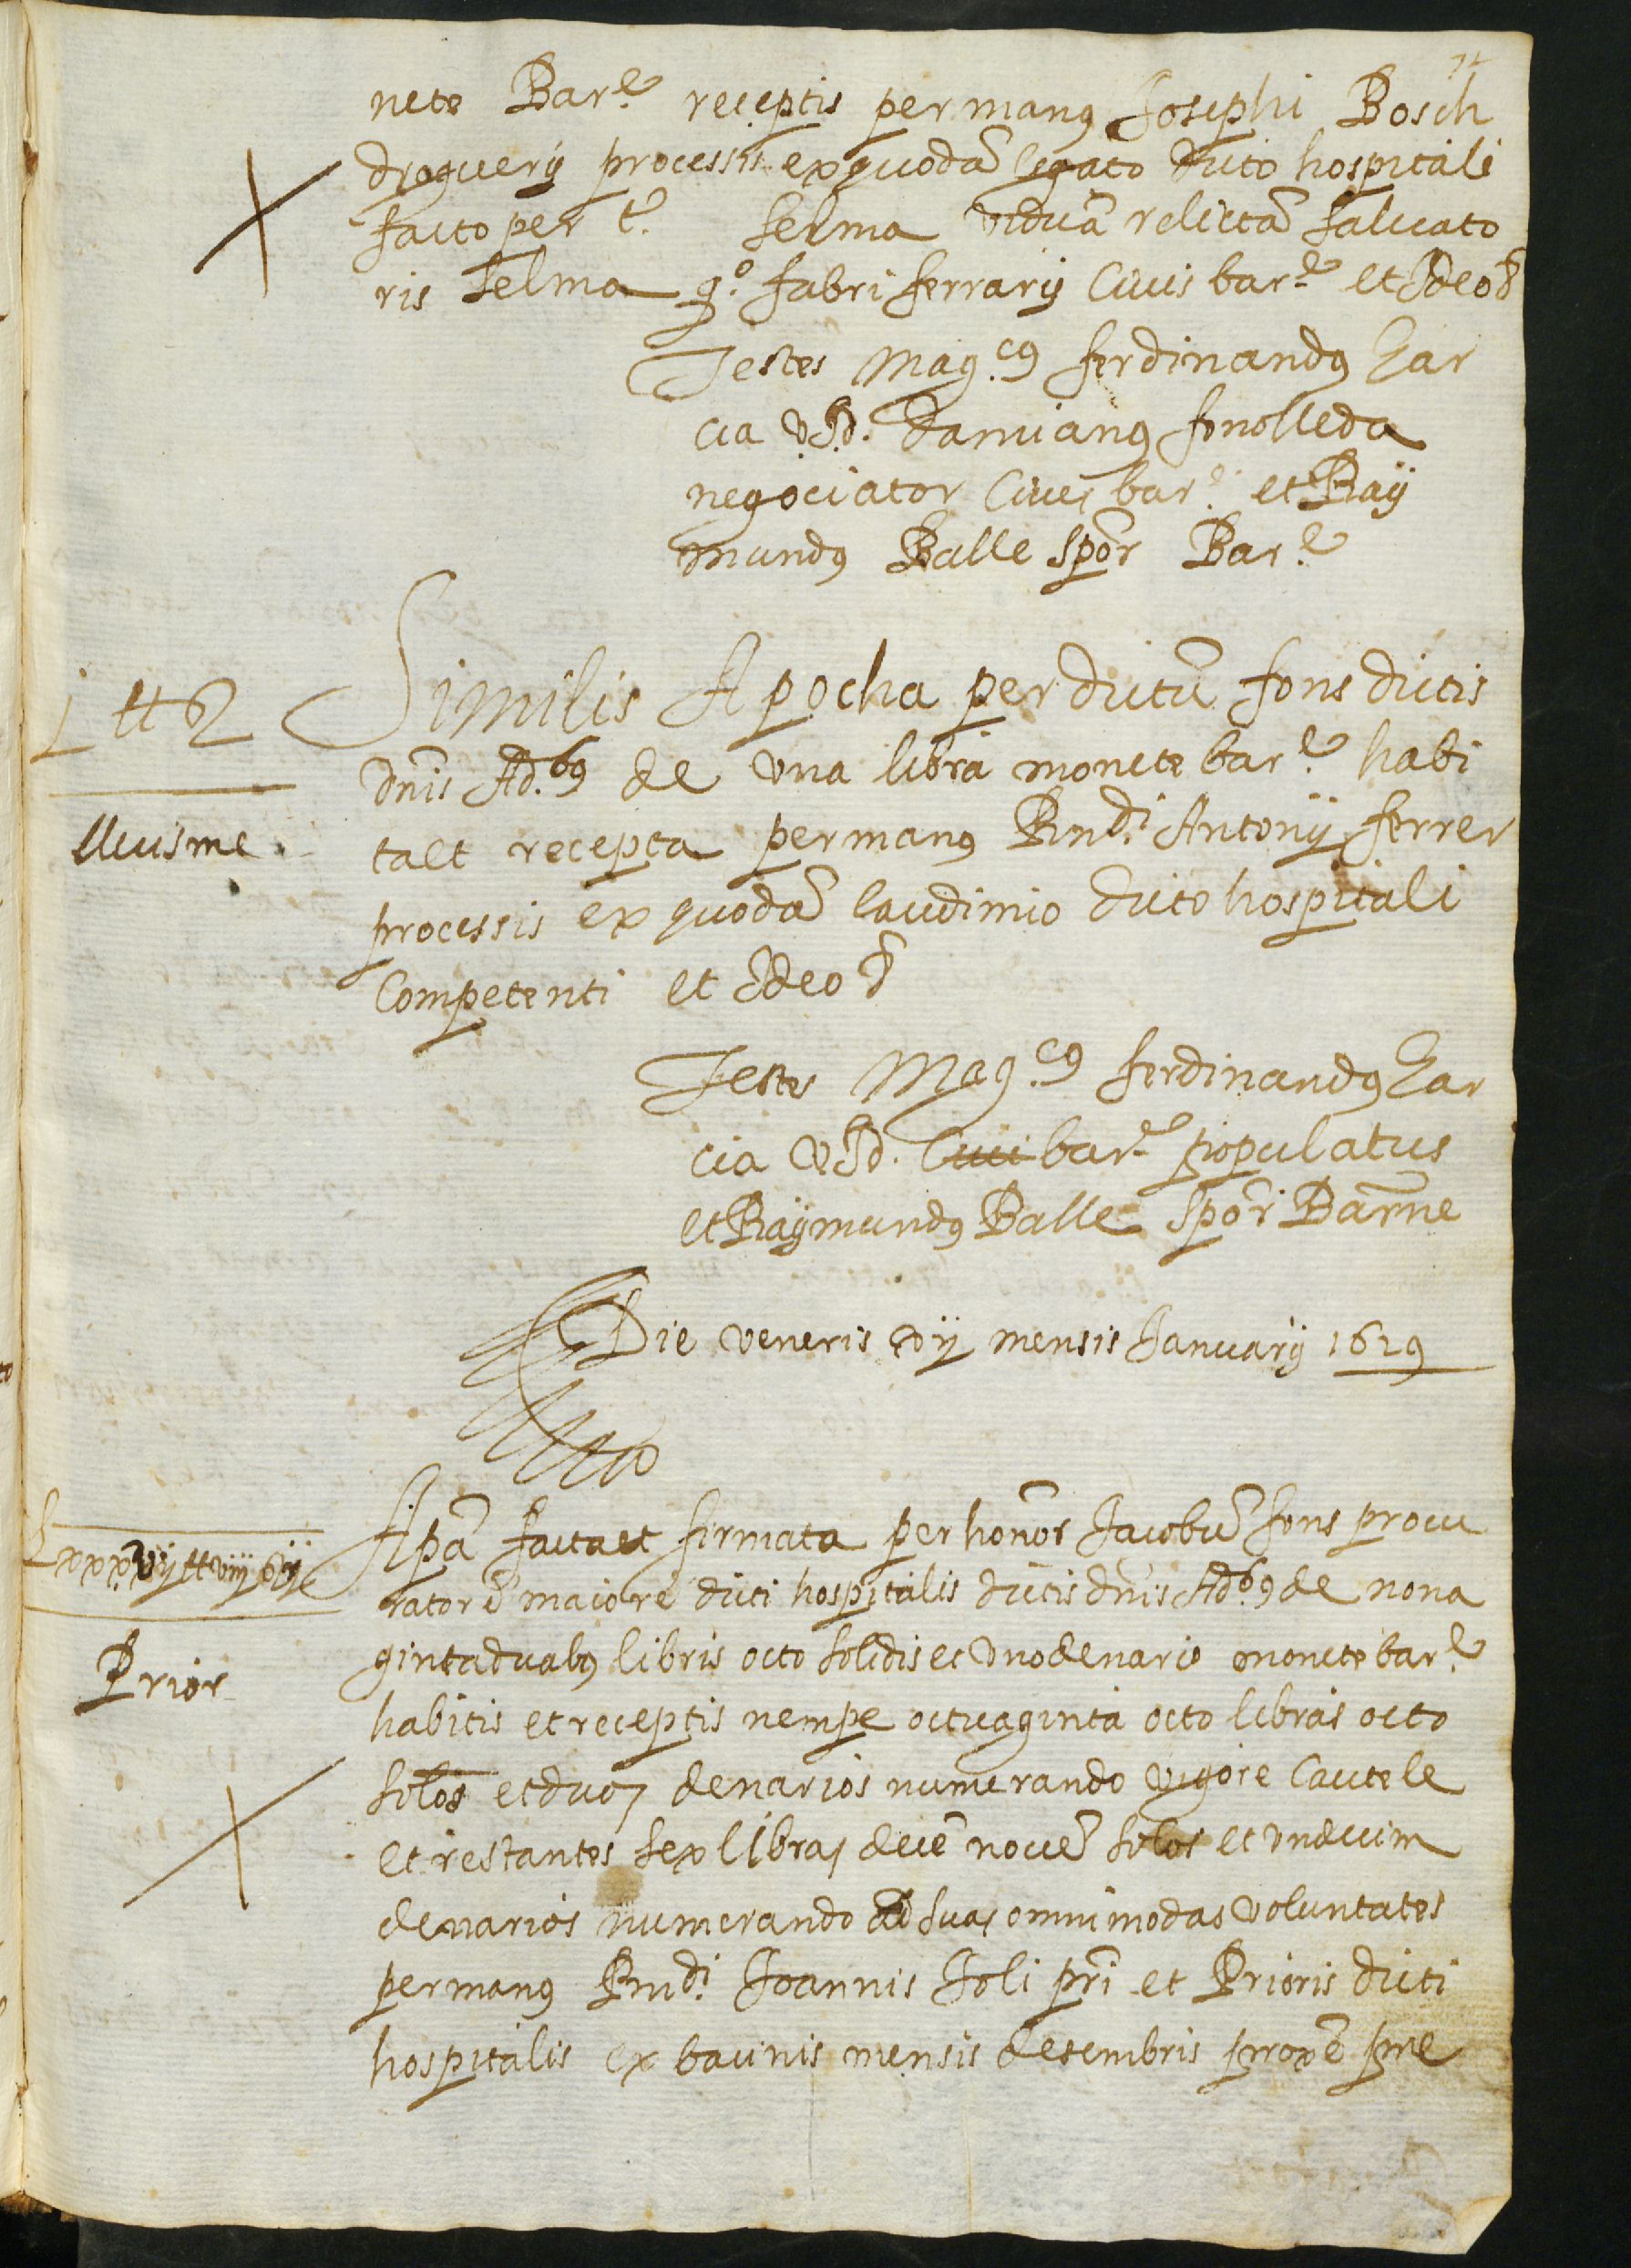 74
nete Bar.e receptis per manꝯ Josephi Bosch
droguerij processis ex quodã legato dicto hospitali
facto per t.e Selma viduã relictã Saluato
ris Selma q.o fabri ferrarij Ciuis bar.e et Ideo &
Testes Mag.cꝯ ferdinandꝯ Gar
cia V.J.d. Damianꝯ fonolleda
negociator Ciues bar.e et Raÿ
mundꝯ Balle Sp̃or Bar.e
j ₶ 2
Similis Apocha per dictũ fons dictis
Dñis Ad.bꝯ de vna libra monete bar.e habi
lluisme.
ta et recepta per manꝯ Rnd.i Antonij ferrer
processis ex quodã laudimio dicto hospitali
Competenti et Ideo &
Testes Mag.cꝯ ferdinandꝯ Gar
cia VJd. Ciui bar.e populatus
et Raÿmundꝯ Balle Sp̃or Barñe
Die veneris xij mensis Januarij 1629
Apã facta et firmata per hoñor Jacobũ fons procu
ratorẽ maiorẽ dicti hospitalis dictis dñis Ad.bꝯ de nona
Prior
ginta duabꝯ libris octo solidis et vno denario monete bar.e
habitis et receptis nempe octuaginta octo libras octo
solos et duos denarios numerando vigore Cautele
et restantes sex libras decẽ nouẽ solos et vndecim
denarios numerando ad suas omnimodas voluntates
per manꝯ Rnd.i Joannis Joli pr̃i et Prioris dicti
hospitalis ex bacinis mensis desembris proxẽ pre